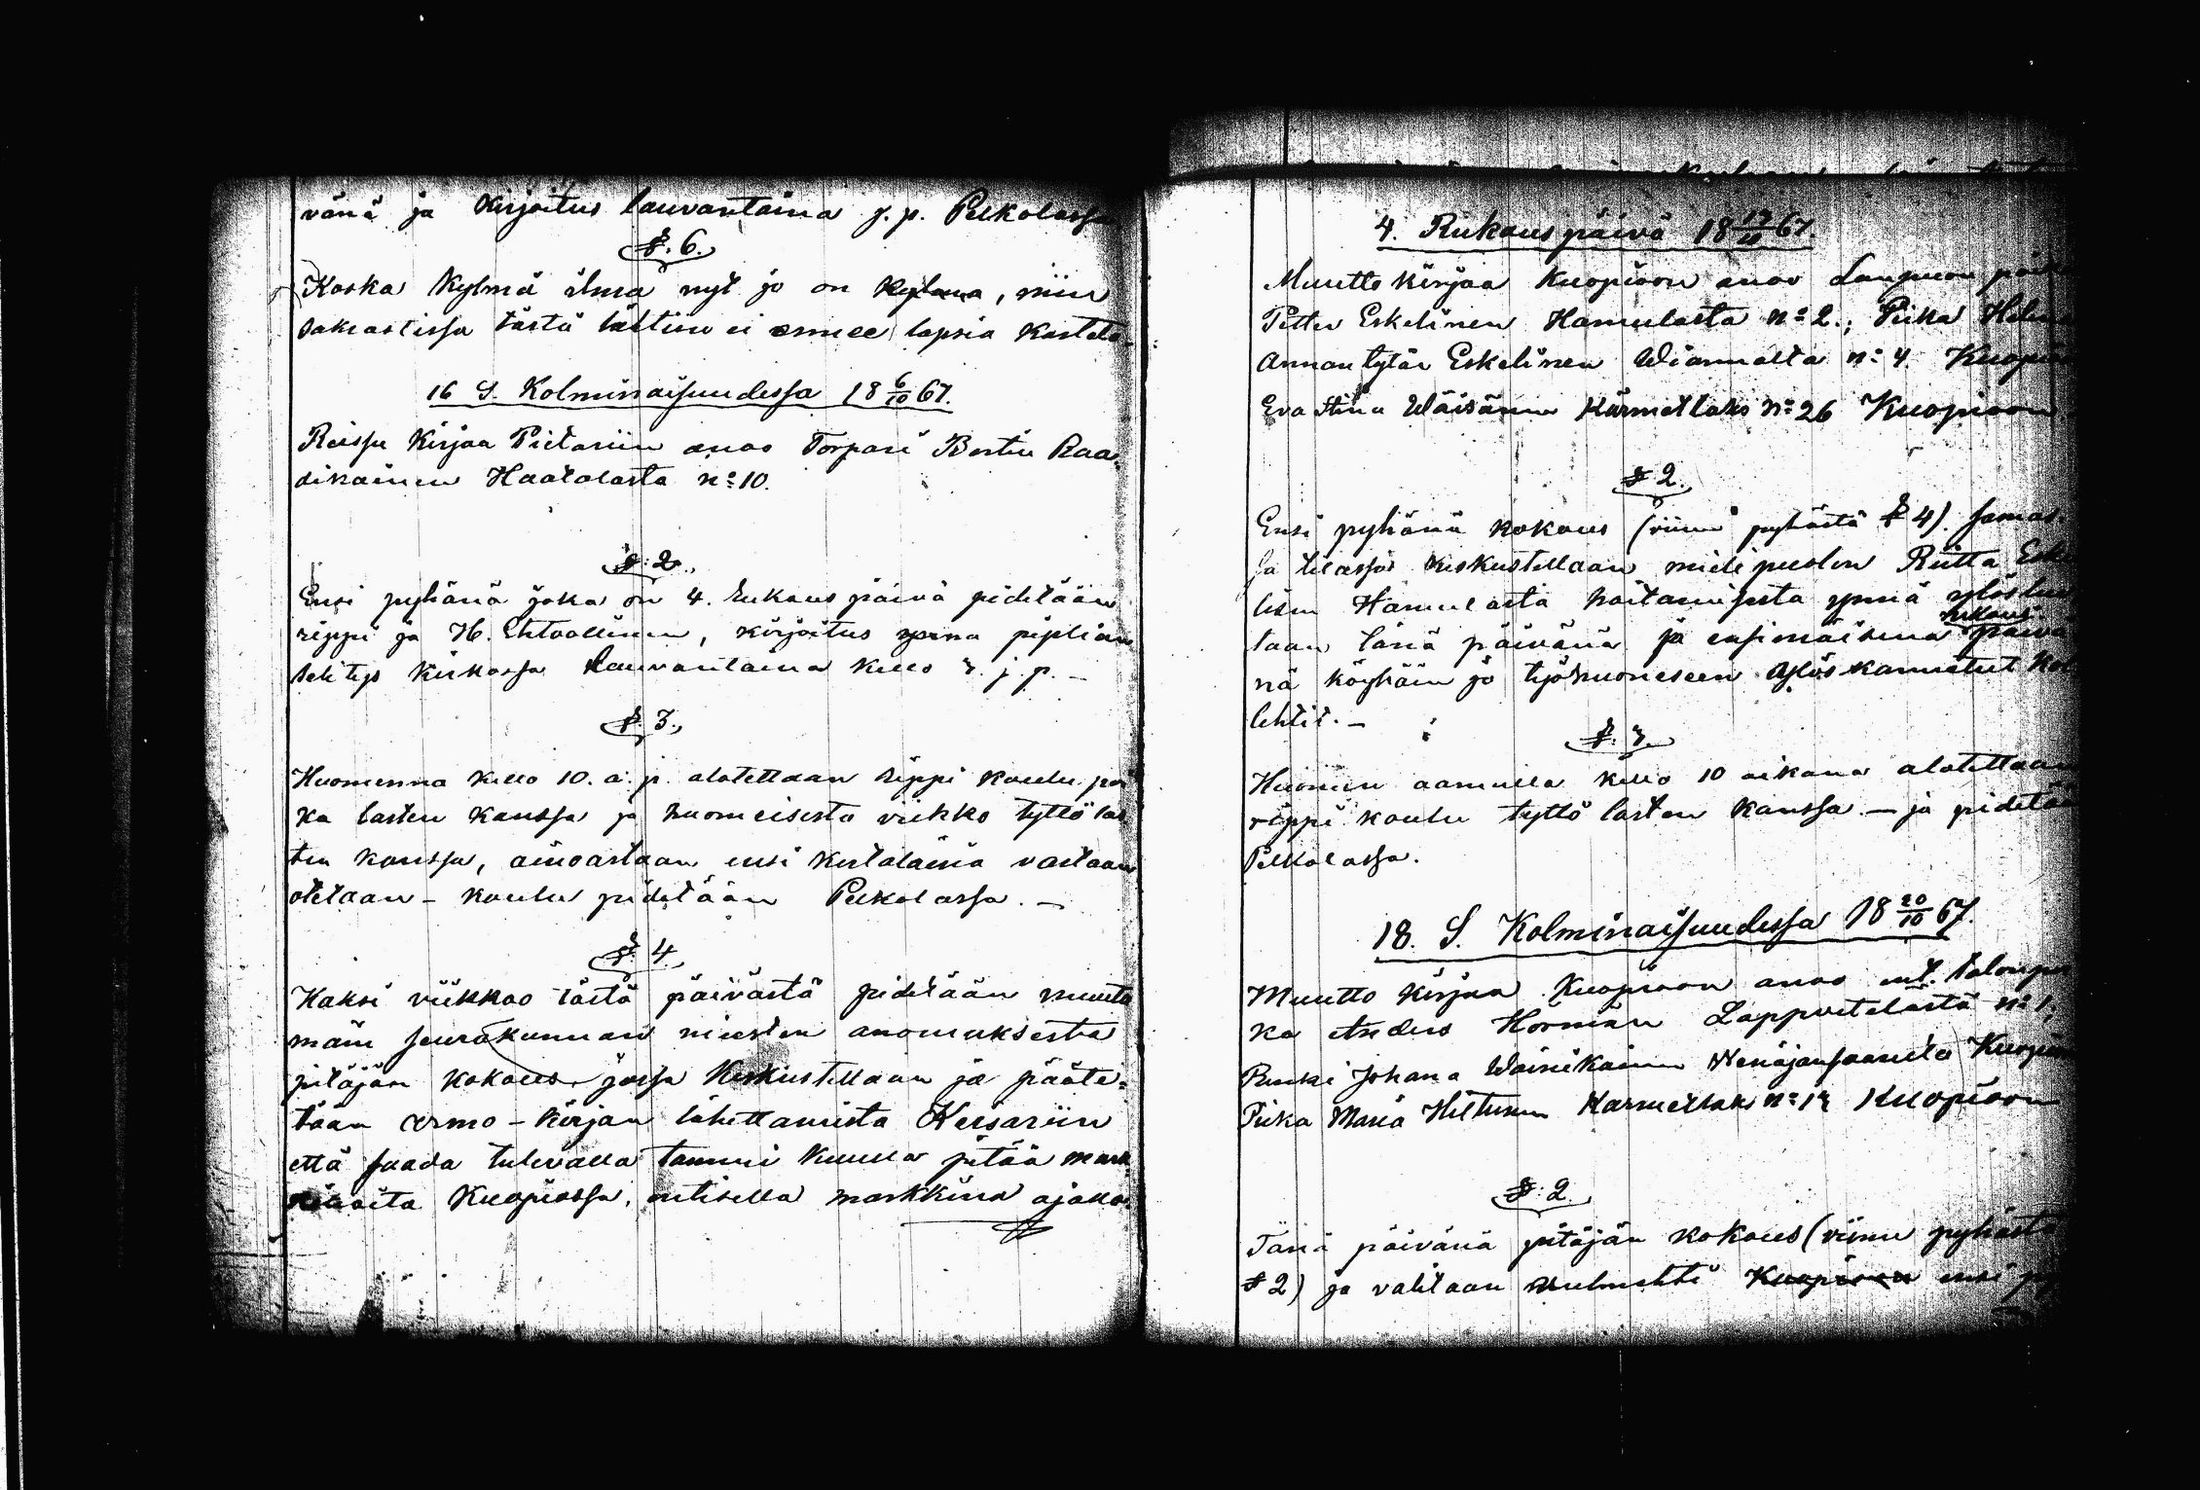 vänä ja Kirjoitus lauvantaina j. p. Pelkolassa
§. 6.
Koska Kylmä ilma nyt jo on kylmä, niin
sakastissa tästä lähtien ei ennee lapsia kasteta.
16 S. Kolminaisuudessa 18 6/10 67.
Reissu Kirjaa Pietariin anoo Torpari Bertin Raa-
dikainen Haatalasta n:o 10.
§. 2.
Ensi pyhänä joka on 4. Rukous päivä pidetään
rippi ja H. Ehtoollinen, kirjoitus ynnä piplian
selitys kirkossa Lauvantaina kello 3. j. p. -
§. 3.
Huomenna kello 10. a. p. alotettaan rippi koulu poi
ka lasten kanssa ja huomeisesta viikko tyttö las
ten kanssa, ainoastaan ensi kertalaisia vastaan
otetaan - koulu pidetään Pelkolassa. -
§. 4
Kaksi viikkoo tästä päivästä pidetään muuta
main seurakunnan miesten anomuksesta
pitäjän kokous jossa Keskustellaan ja pääte-
tään armo-kirjan lähettämistä Keisariin
että saada tulevalla tammi kuulla pitää mark
kinoita Kuopiossa, entisellä markkina ajalla.
4. Rukous päivä 18 13/10 67.
Muutto kirjaa Kuopioon anoo Laupuon
Petter Eskelinen Hamulasta n:o 2.; Piika
Annantytär Eskelinen Wiannalta n:o 4.
Eva Stina Wäisänen Kärmellaks n:o 26 Kuopioon
§ 2.
Ensi pyhänä kokous (viime pyhästä § 4). samas-
sa tilassa keskustellaan mielipuolen Riitta
lisen Hamulasta hoitamisesta ynnä
taan tänä päivänä ja ensimäisenä rukous päivä
nä köyhäin ja työhuoneseen ylöskannetut
lehtit. -
§. 3.
Huomen aamulla kello 10 aikana alotettaan
rippi koulu tyttö lasten kanssa - ja pidetään
Pelkolassa.
18. S. Kolminaisuudessa 18 20/10 67.
Muutto kirjaa Kuopioon anoo ent. talonpoi
ka Anders Horman Lappvetelästä n:o 1,
Renki Johana Wäinikainen Wenäjänsaarelta
Piika Maria Hiltunen Kärmellaks n:o 13 Kuopioon
§. 2.
Tänä päivänä pitäjän kokous (viime pyhästä
§ 2) ja valitaan Kuopioon ensi